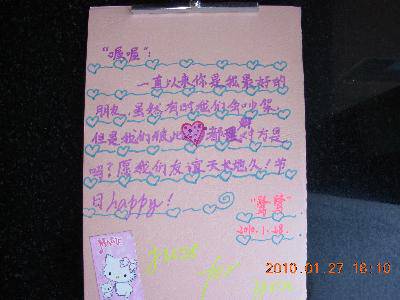 “喔喔”:
一直以来你是我最好的
朋友,虽然有时我们会吵架.
但是我们彼此都理解对方是
吗?愿我们友谊天长地久!节
日happy!
“鸶鸶”
2010.1.28.
MARIE
just
for
you
2010.01.27 16:10